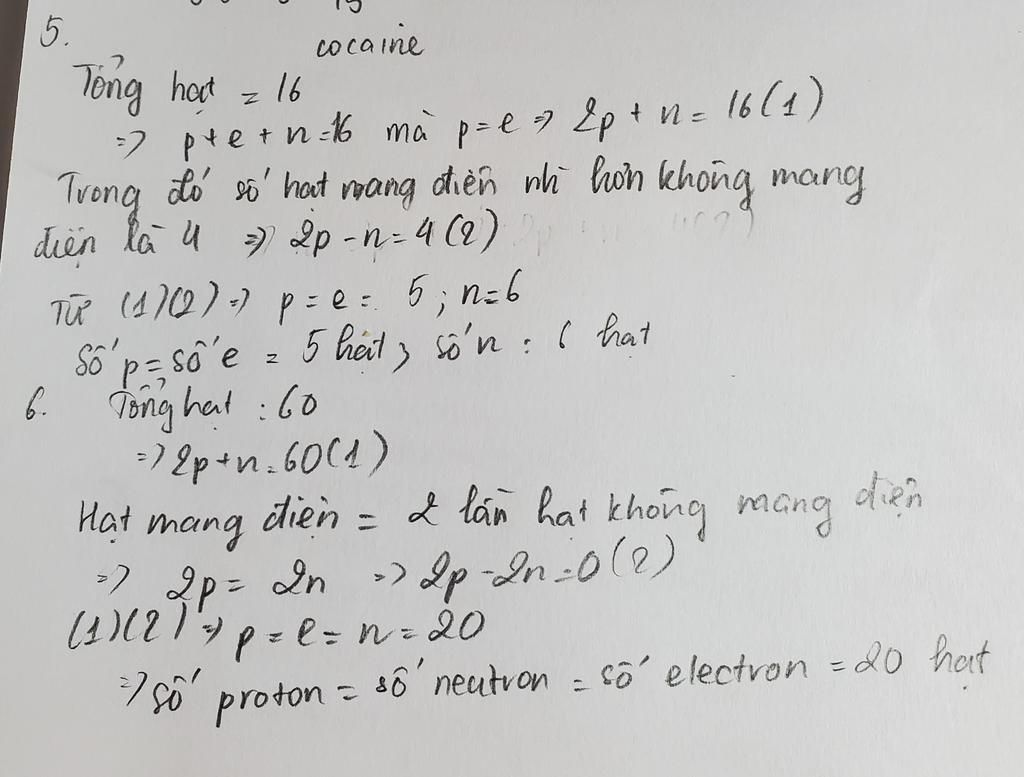 5.
cocaine
Tổng hạt = 16
=> p+e+n=16 mà p=e => 2p+n=16(1)
Trong đó số hạt mang điện nhì hơn không mang
điện là 4 => 2p-n=4(2)
Từ (1)(2)=> p=e= 5; n=6
Số p=số e = 5 hạt, số n: 6 hạt
6. Tổng hạt : 60
=> 2p+n=60(1)
Hạt mang điện = 2 lần hạt không mang điện
=> 2p= 2n => 2p-2n=0(2)
(1)(2) => p=e=n=20
=> số proton = số neutron = số electron = 20 hạt